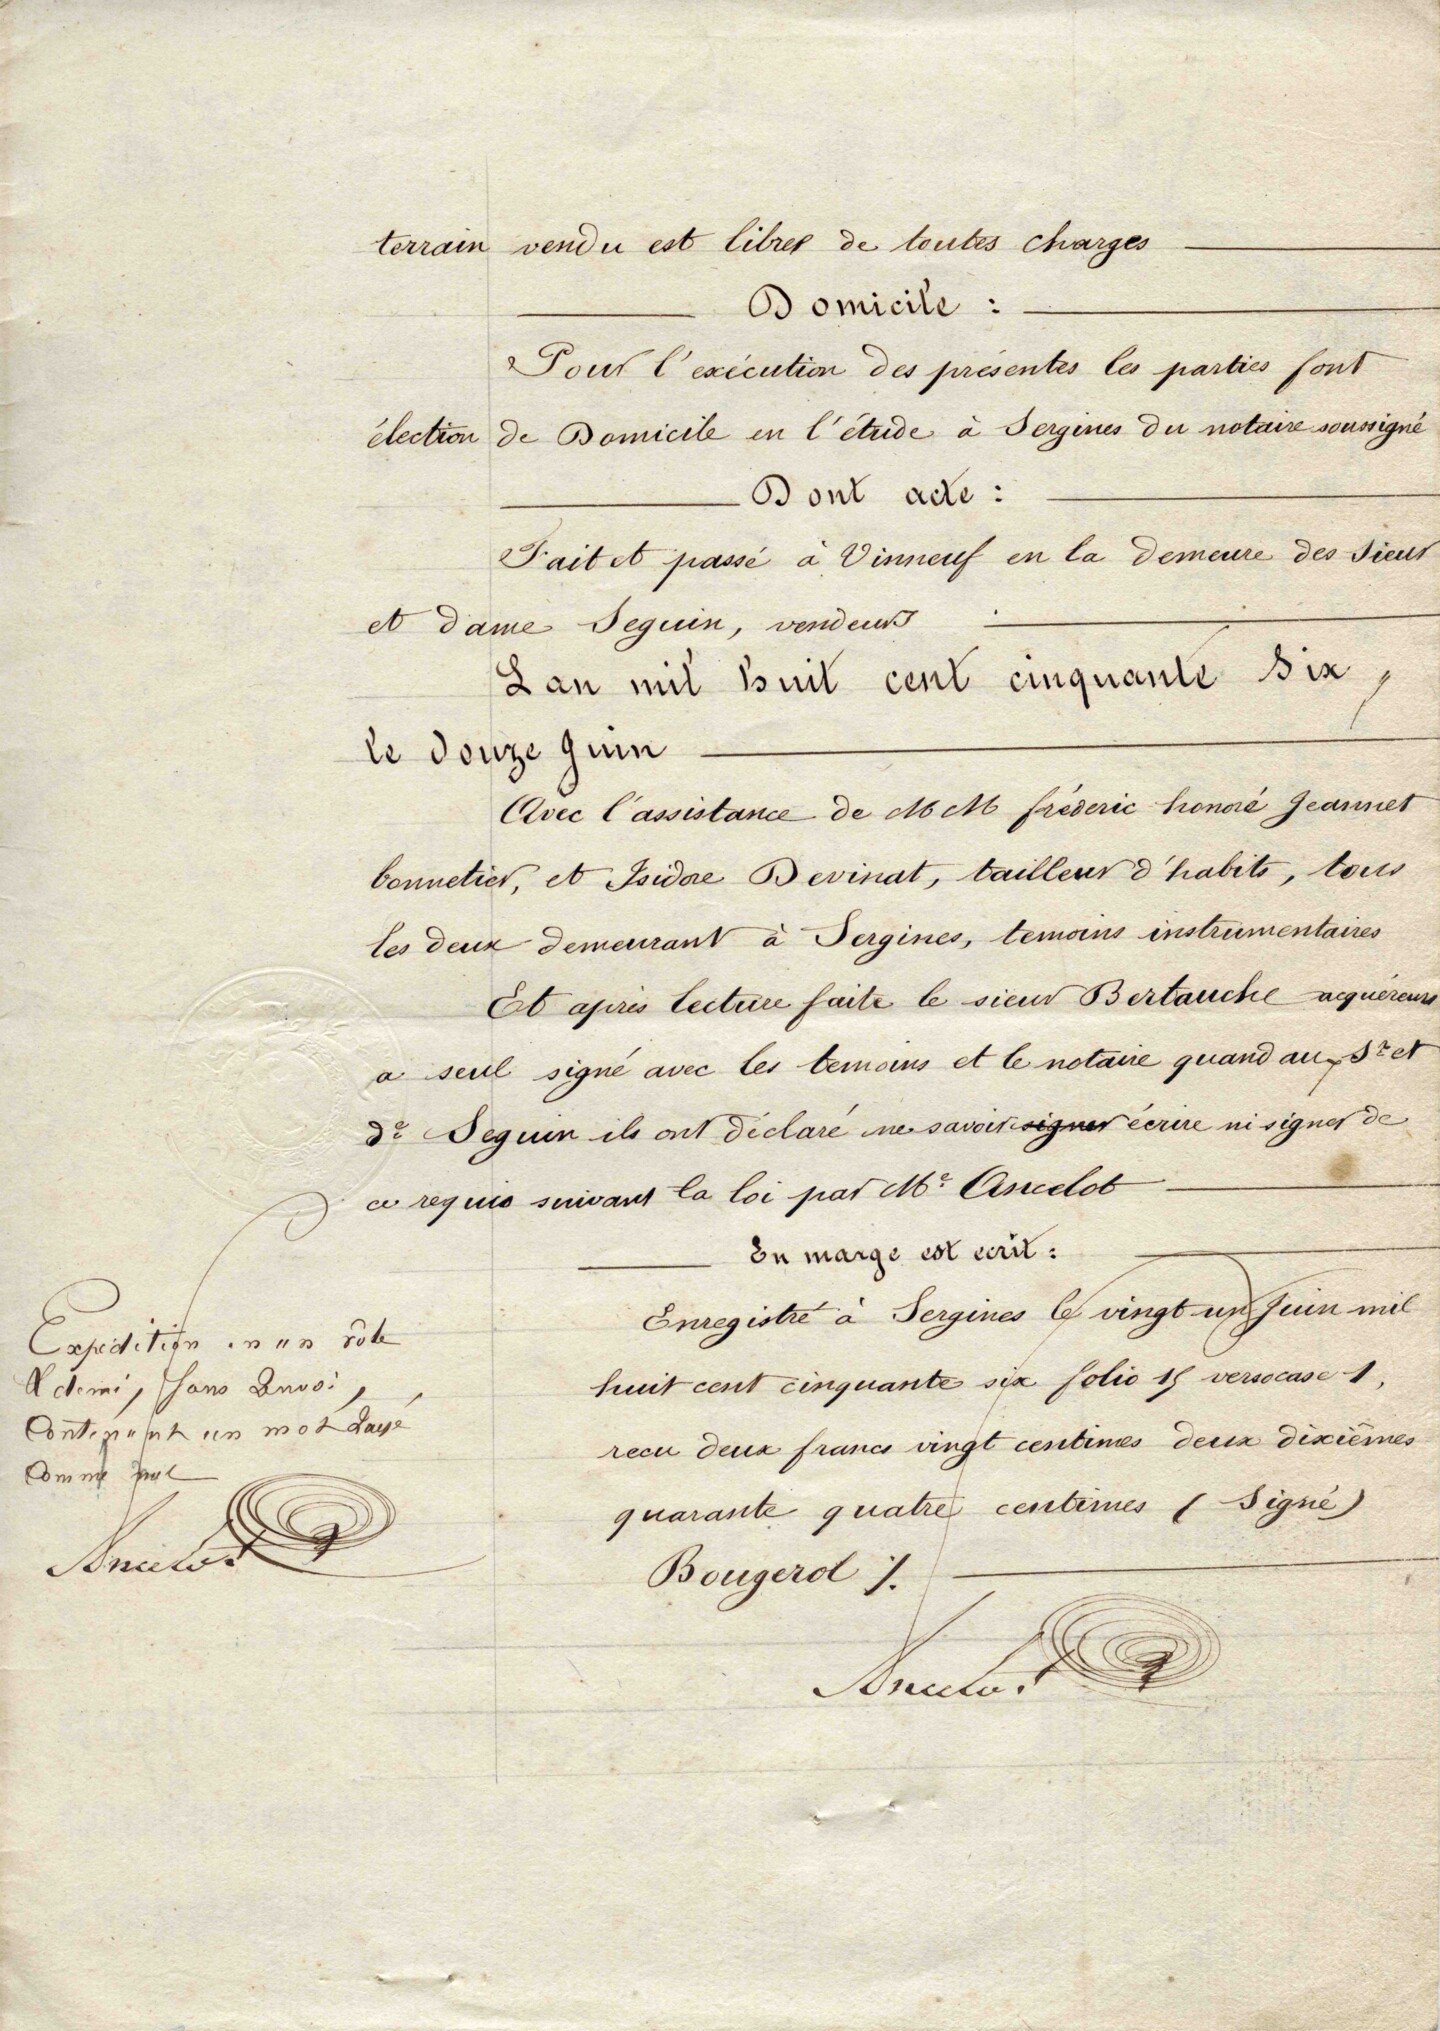 terrain vendu est libres de toutes charges
Domicile :
Pour l'exécution des présentes les parties font
élection de Domicile en l'étude à Sergines du notaire soussigné
Dont acte :
Fait et passé à Vinneuf en la demeure des sieur
et dame Seguin, vendeurs
L'an mil huit cent cinquante six,
le douze Juin
Avec l'assistance de MM fréderic honoré Jeannet
bonnetier, et Isidore Devinat, tailleur d'habits, tous
les deux demeurant à Sergines, temoins instrumentaires
Et après lecture faite le sieur Bertauche acquéreurs
a seul signé avec les temoins et le notaire quand aux Sr et
de Seguin ils ont déclaré ne savoir signer écrire ni signer de
ce requis suivant la loi par Me Ancelot
En marge est ecrit :
Enregistré à Sergines le vingt un Juin mil
huit cent cinquante six folio 15 verso case 1,
recu deux francs vingt centimes deux dixièmes
quarante quatre centimes (Signé)
Bougerol ./.
Ancelot
Expédition en un rôle
& demi, sans renvoi,
contenant un mot rayé
comme nul
Ancelot